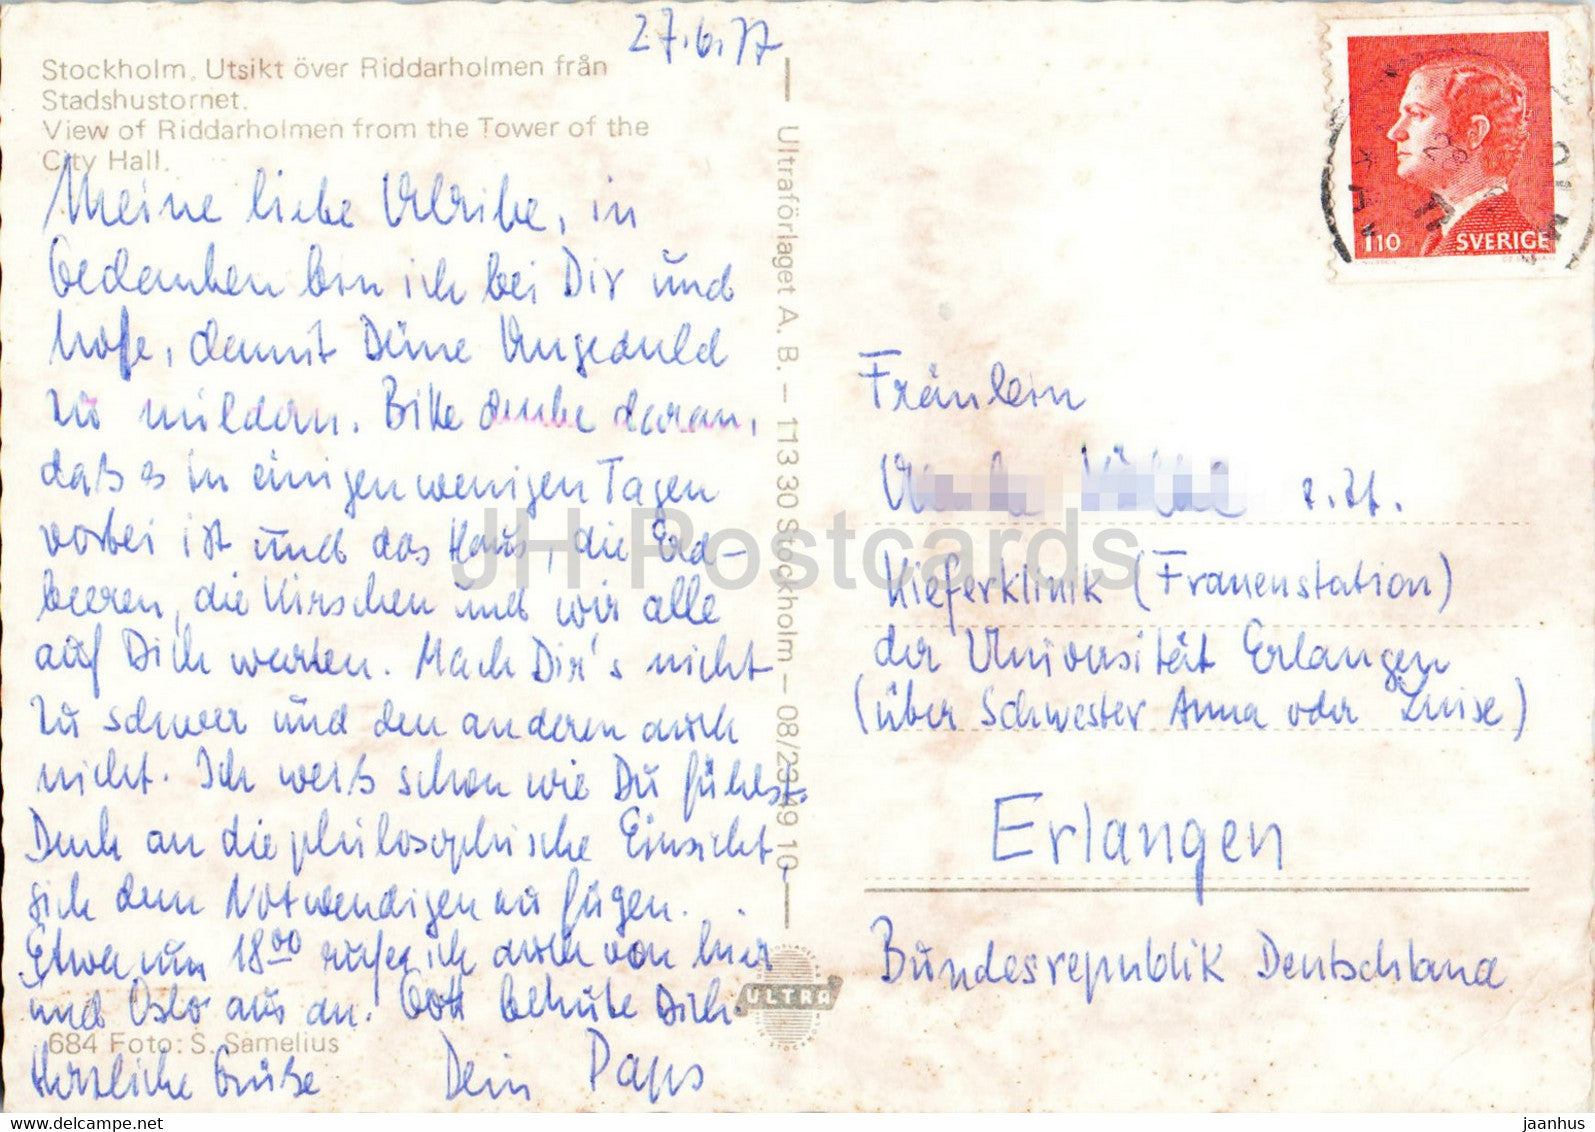 27.6.77
Stockholm. Utsikt över Riddarholmen från
Stadshustornet.
View of Riddarholmen from the Tower of the
City Hall.
Meine liebe Ulrike, in
Gedanken bin ich bei Dir und
hoffe, damit Deine Ungeduld
zu mildern. Bitte denke daran,
daß es in einigen wenigen Tagen
vorbei ist und das Haus, die Erd-
beeren, die Kirschen und wir alle
auf Dich warten. Mach Dir's nicht
zu schwer und den anderen auch
nicht. Ich weiß schon wie Du fühlst.
Denk an die philosophische Einsicht,
sich dem Notwendigen zu fügen.
Etwa um 18⁰⁰ rufe ich auch von hier
und Oslo aus an. Gott behüte Dich.
Herzliche Grüße Dein Paps
684 Foto: S. Samelius
Ultraförlaget A. B. – 113 30 Stockholm – 08/23 49 10
ULTRA
110 SVERIGE
Fräulein
z. Zt.
Kieferklinik (Frauenstation)
der Universität Erlangen
(über Schwester Anna oder Luise)
Erlangen
Bundesrepublik Deutschland
JH Postcards
delcampe.net
jaanhus